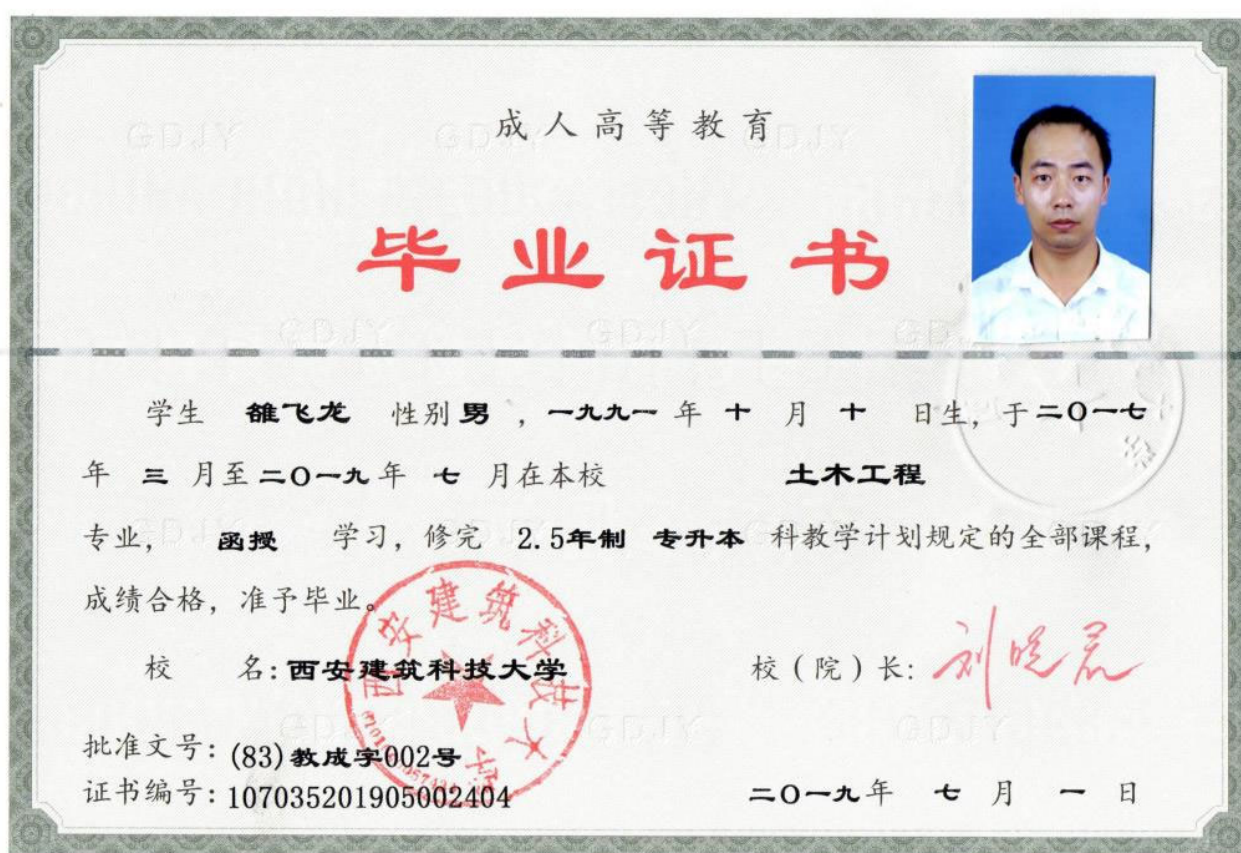 成人高等教育
毕业证书
学生 雒飞龙 性别 男 ,一九九一 年 十 月 十 日生,于二〇一七
年 三 月至二〇一九年 七 月在本校 土木工程
专业, 函授 学习,修完 2.5年制 专升本 科教学计划规定的全部课程,
成绩合格,准予毕业。
校 名:西安建筑科技大学 校(院)长:刘晓君
批准文号:(83)教成字002号
证书编号:107035201905002404 二〇一九年 七 月 一 日
西安建筑科技大学
GDJY